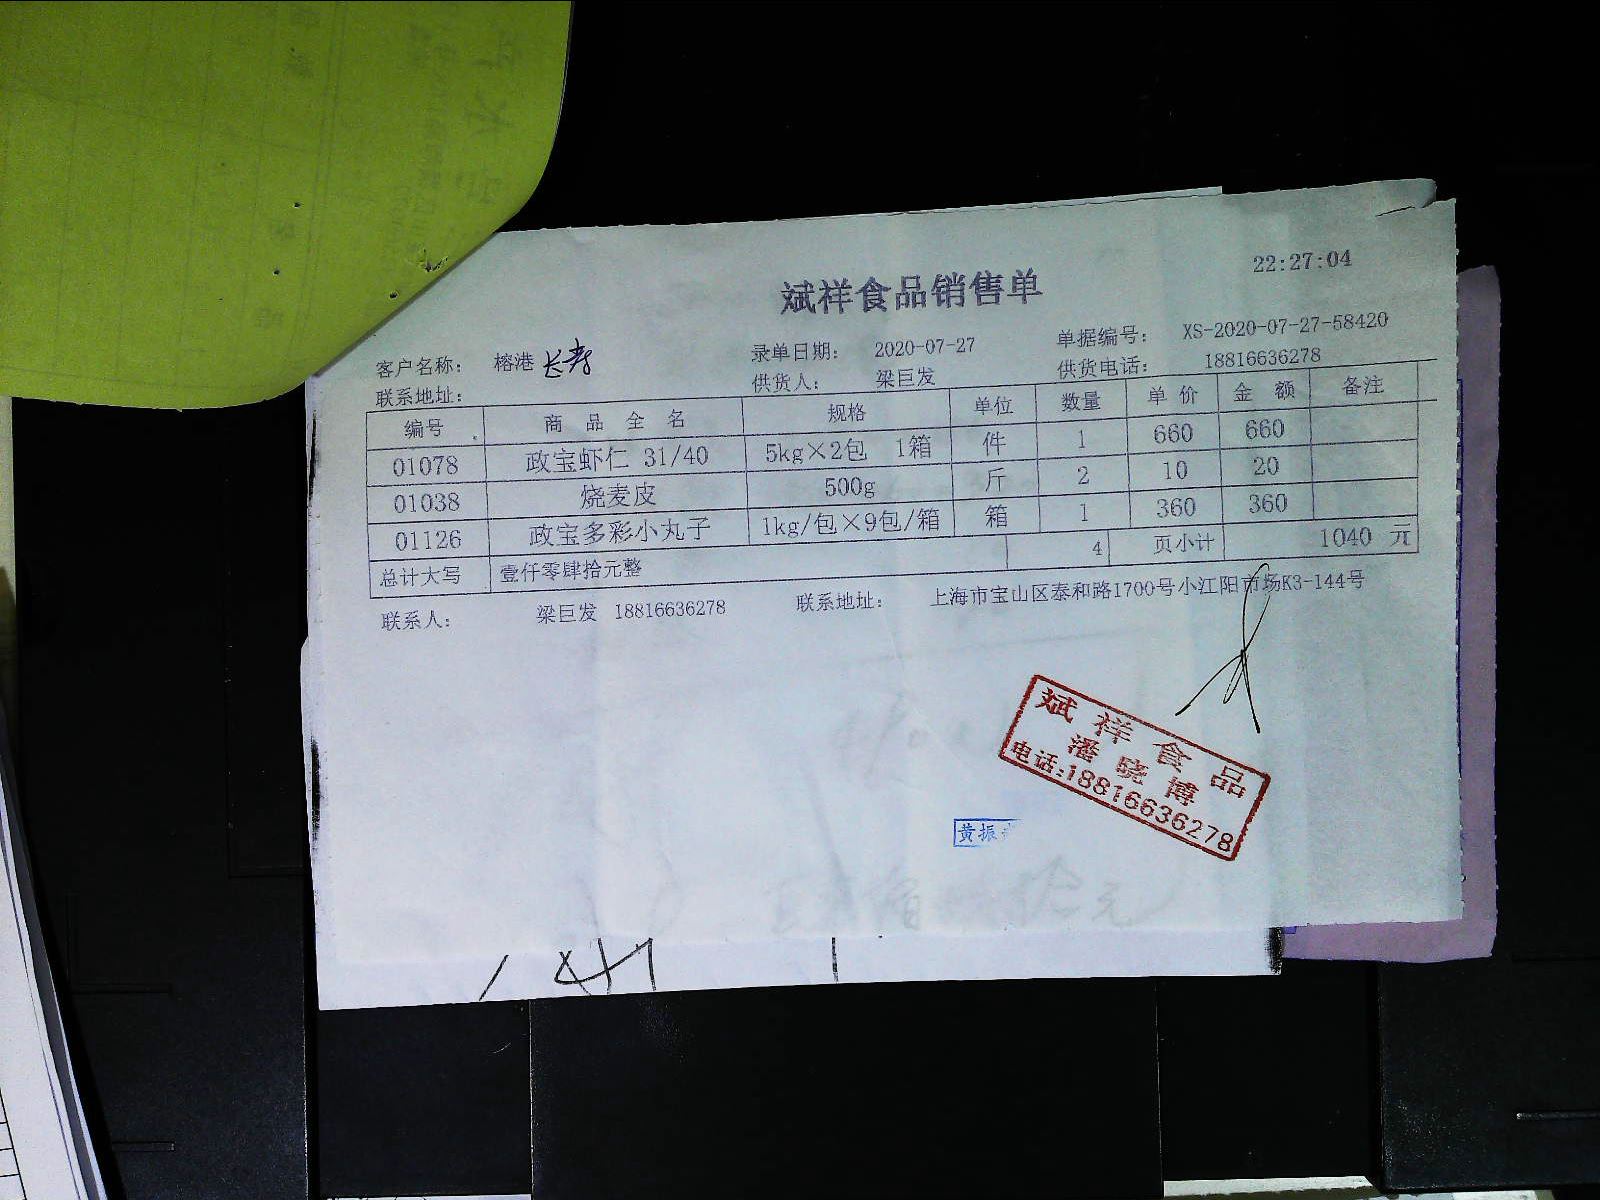 22:27:04
斌祥食品销售单
客户名称： 榕港 长寿 录单日期： 2020-07-27 单据编号： XS-2020-07-27-58420
联系地址： 供货人： 梁巨发 供货电话： 18816636278
编号 商品全名 规格 单位 数量 单价 金额 备注
01078 政宝虾仁 31/40 5kg×2包 1箱 件 1 660 660
01038 烧麦皮 500g 斤 2 10 20
01126 政宝多彩小丸子 1kg/包×9包/箱 箱 1 360 360
总计大写 壹仟零肆拾元整 4 页小计 1040 元
联系人： 梁巨发 18816636278 联系地址： 上海市宝山区泰和路1700号小江阳市场K3-144号
斌祥食品
潘晓博
电话:18816636278
黄振